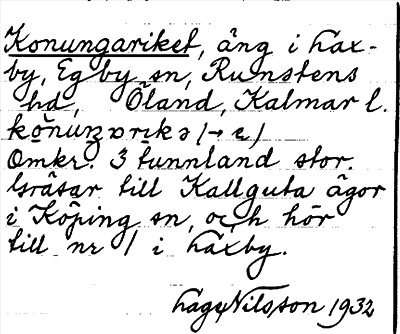 Konungariket, äng i Laxby,
by, Egby sn, Runstens
hd, Öland, Kalmar l.
Omkr. 3 tunnland stor.
Gräsar till Kallguta ägor
i Köping sn, och hör
till nr 1 i Laxby.
Lage Nilsson 1932